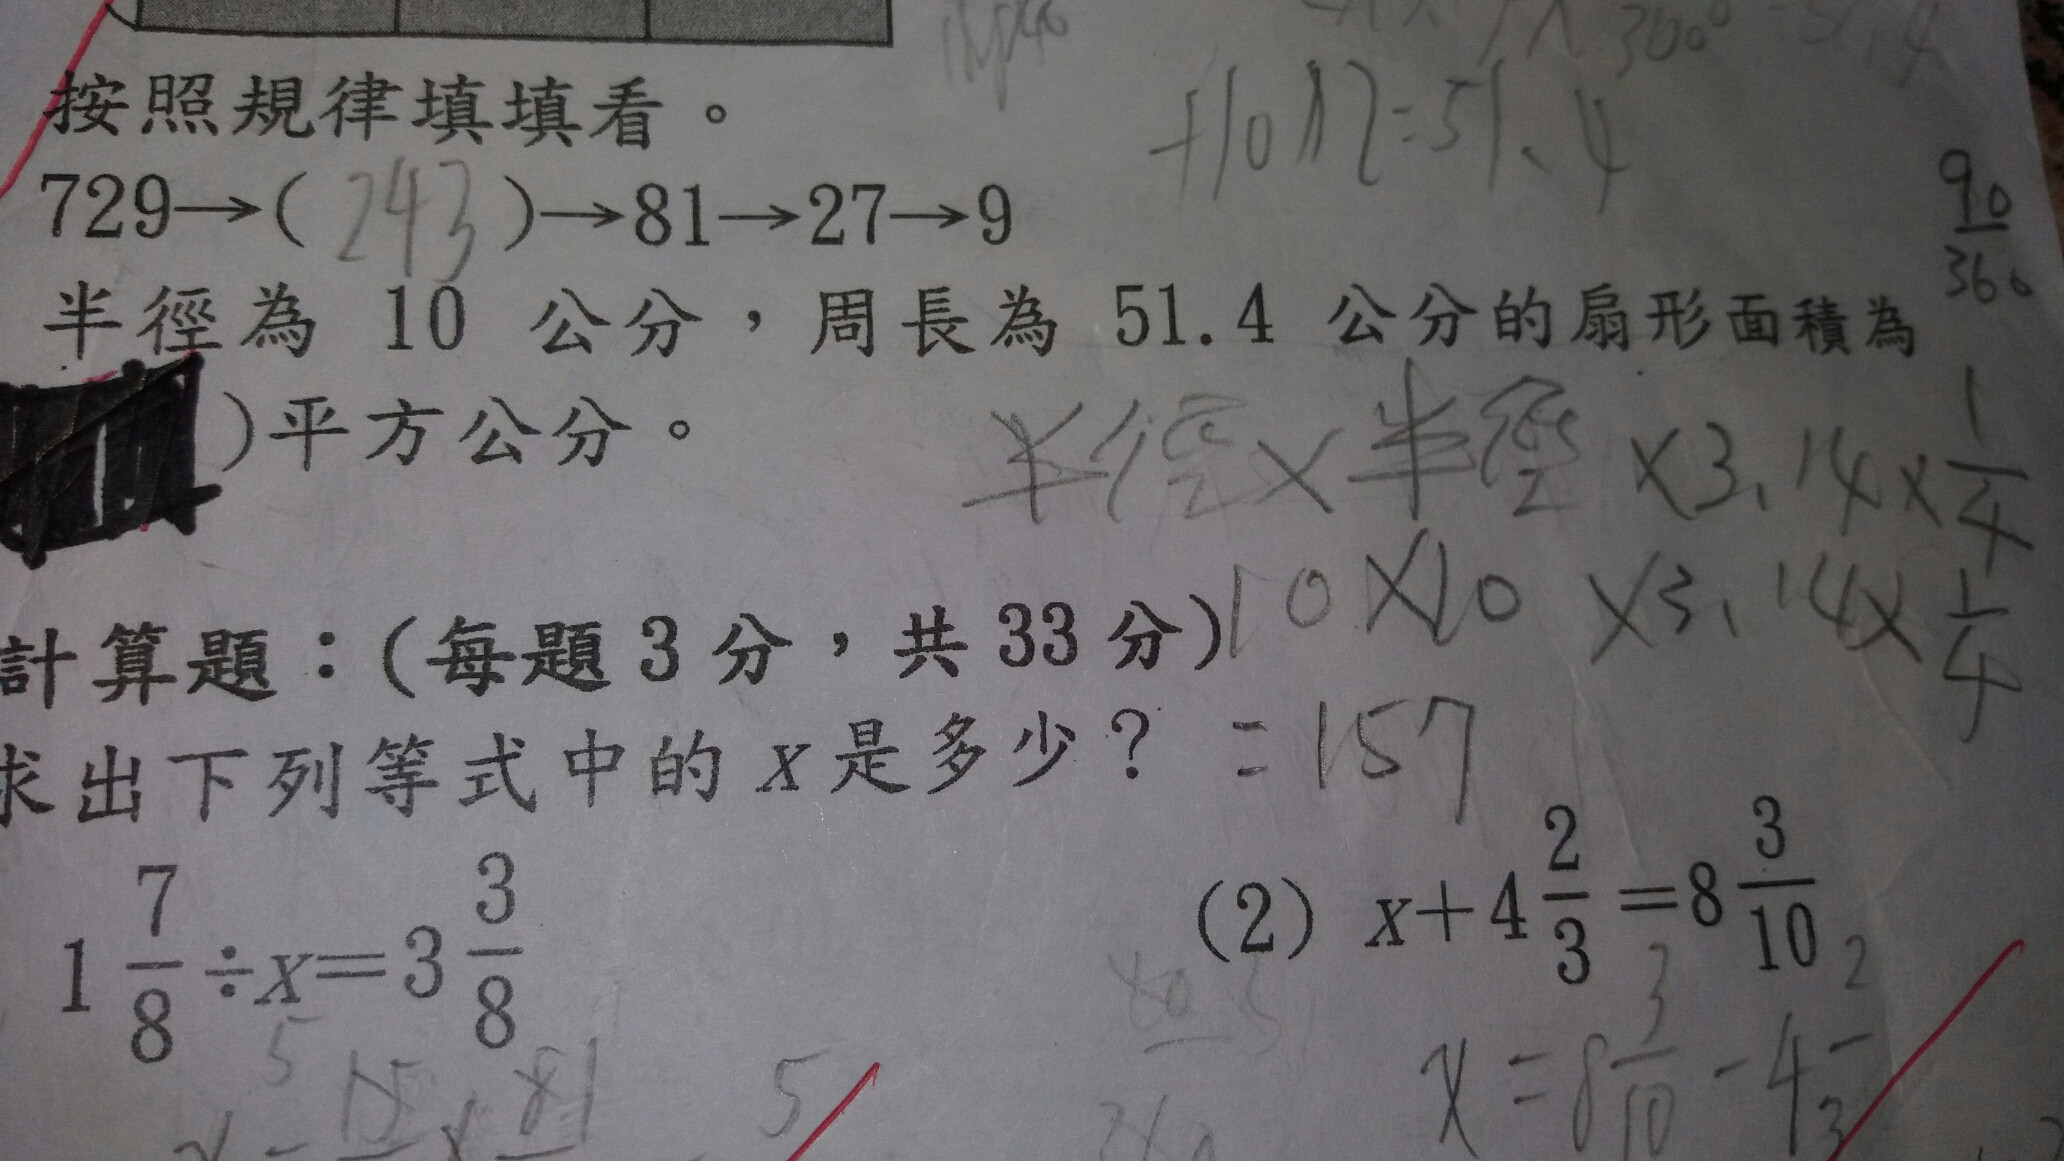 按照規律填填看。
+10×2=51.4
729→( 243 )→81→27→9
90
360
半徑為 10 公分,周長為 51.4 公分的扇形面積為
)平方公分。
半徑×半徑×3.14×1/4
10×10×3.14×1/4
=157
計算題:(每題 3 分,共 33 分)
求出下列等式中的 x 是多少?
1 7/8 ÷x=3 3/8
(2) x+4 2/3 =8 3/10
x=8 3/10 -4 2/3
5